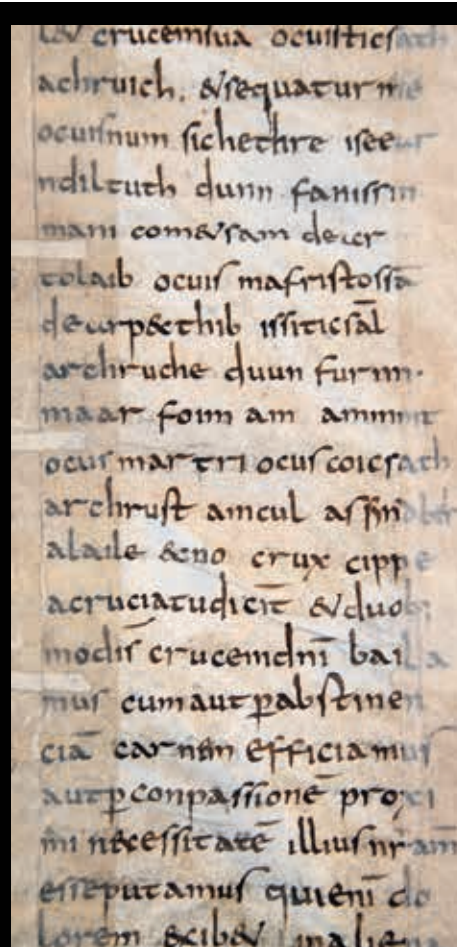 l& crucemsua ocuisticsath
achruich. &sequatur me
ocuisnum sichethre iseear
ndiltuth dunn fanissin
mani com&sam de ar
tolaib ocuis mafristossā
de arp&thib issiticsāl
archruche duun furnn·
maar foim am ammint
ocus martri ocus coicsath
archrust amcul asƥn̄dber
alaile &no crux cippe
acruciatudicit̄ &duob;
modis̄ crucemdnī baila
mus cumaut ꝑabstinen
ciā carnēm efficiamus
autꝑconpassionē proxi
mi necessitatē illiusnr̄am̄
esseputamus quienī do
lorem &cib& inaliena